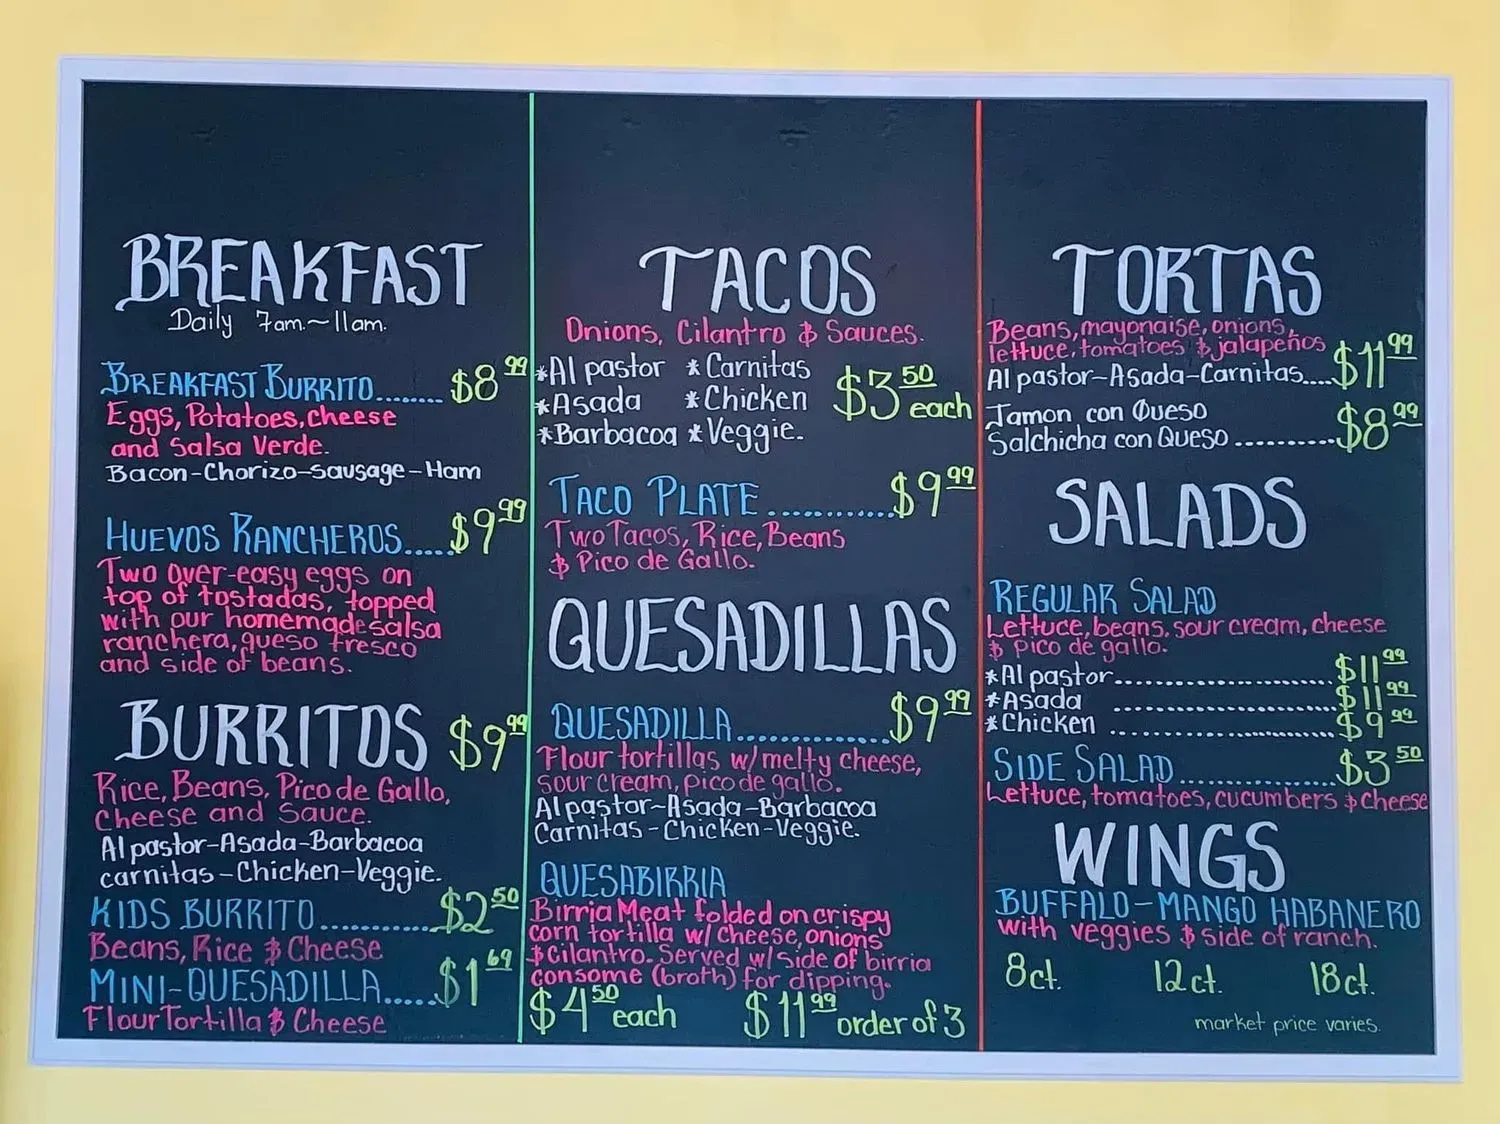 BREAKFAST
Daily 7am.~11am.
BREAKFAST BURRITO........ $8 99
Eggs, Potatoes, cheese
and Salsa Verde.
Bacon-Chorizo-sausage-Ham
HUEVOS RANCHEROS..... $9 99
Two over-easy eggs on
top of tostadas, topped
with our homemade salsa
ranchera, queso fresco
and side of beans.
BURRITOS $9 99
Rice, Beans, Pico de Gallo,
Cheese and Sauce.
Al pastor-Asada-Barbacoa
carnitas-Chicken-Veggie.
KIDS BURRITO............ $2 50
Beans, Rice & Cheese
MINI-QUESADILLA..... $1 69
Flour Tortilla & Cheese
TACOS
Onions, Cilantro & Sauces.
*Al pastor *Carnitas
*Asada *Chicken $3 50 each
*Barbacoa *Veggie.
TACO PLATE ............. $9 99
Two Tacos, Rice, Beans
& Pico de Gallo.
QUESADILLAS
QUESADILLA............... $9 99
Flour tortillas w/ melty cheese,
sour cream, pico de gallo.
Al pastor-Asada-Barbacoa
Carnitas-Chicken-Veggie.
QUESABIRRIA
Birria Meat folded on crispy
corn tortilla w/ cheese, onions
& Cilantro. Served w/ side of birria
consome (broth) for dipping.
$4 50 each $11 99 order of 3
TORTAS
Beans, mayonaise, onions,
lettuce, tomatoes & jalapeños
Al pastor-Asada-Carnitas.... $11 99
Jamon con Queso
Salchicha con Queso .......... $8 99
SALADS
REGULAR SALAD
Lettuce, beans, sour cream, cheese
& pico de gallo.
*Al pastor........................... $11 99
*Asada ........................... $11 99
*Chicken ........................... $9 99
SIDE SALAD.................. $3 50
Lettuce, tomatoes, cucumbers & cheese
WINGS
BUFFALO-MANGO HABANERO
with veggies & side of ranch.
8ct. 12ct. 18ct.
market price varies.